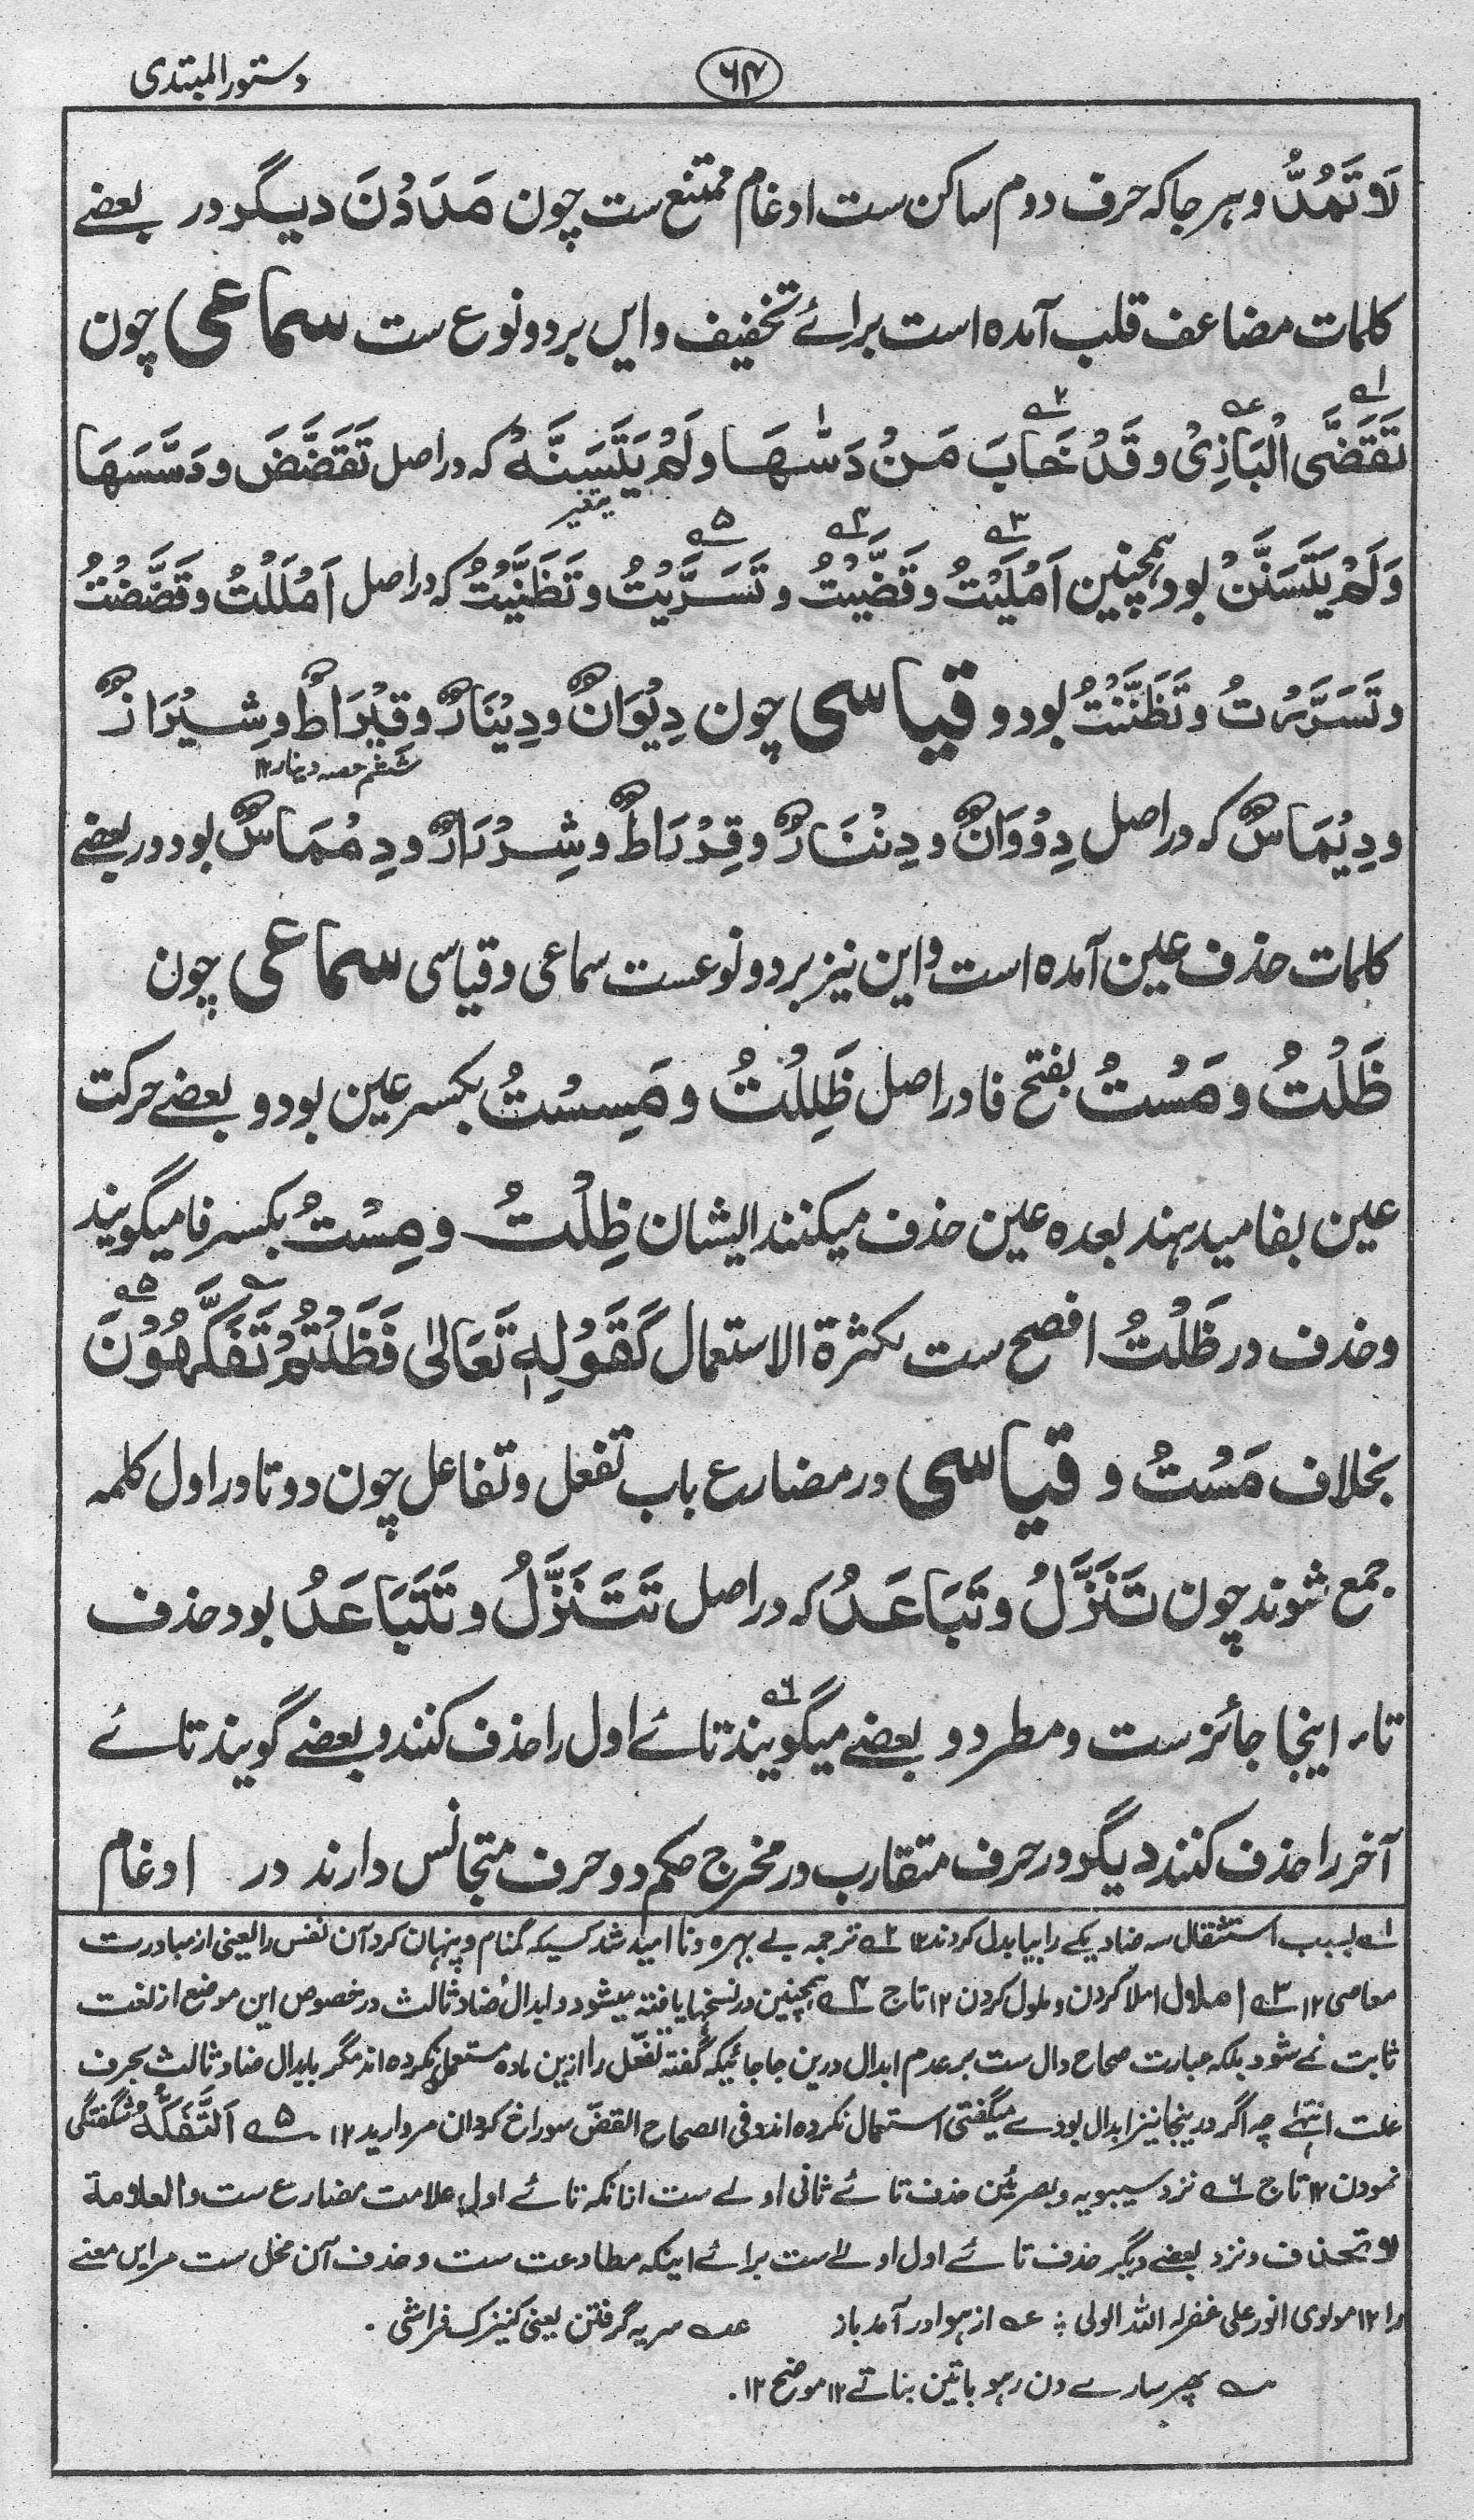 دستور المبتدی
۶۴
لَا تَمُدُّ و ہر جا کہ حرف دوم ساکن ست ادغام ممتنع ست چون مَدَدْنَ دیگر در بعضے
کلمات مضاعف قلب آمدہ است برائے تخفیف و ایں بر دو نوع ست سماعی چون
تَقَضَّى الْبَازِىْ و قَدْ خَابَ مَنْ دَسّٰهَا و لَمْ يَتَسَنَّهْ کہ در اصل تَقَضَّضَ و دَسَّسَهَا
یتغیر
وَلَمْ يَتَسَنَّنْ بود و ہمچنین اَمْلَيْتُ و قَضَّيْتُ و تَسَرَّيْتُ و تَظَنَّيْتُ کہ در اصل اَمْلَلْتُ و قَضَّضْتُ
و تَسَرَّرْتُ و تَظَنَّنْتُ بود و قیاسی چون دِيْوَانٌ و دِيْنَارٌ و قِيْرَاطٌ و شِيْرَازٌ
ششم حصہ دینار ۱۲
و دِيْمَاسٌ کہ در اصل دِوْوَانٌ و دِنْنَارٌ و قِرْرَاطٌ و شِرْرَازٌ و دِمْمَاسٌ بود و در بعضے
کلمات حذف عین آمدہ است و این نیز بر دو نوعست سماعی و قیاسی سماعی چون
ظَلْتُ و مَسْتُ بفتح فا در اصل ظَلِلْتُ و مَسِسْتُ بکسر عین بود و بعضے حرکت
عین بفا میدہند بعدہ عین حذف میکنند ایشان ظِلْتُ و مِسْتُ بکسر فا میگویند
و حذف در ظَلْتُ افصح ست لکثرة الاستعمال كَقَوْلِهٖ تَعَالٰى فَظَلْتُمْ تَفَكَّهُوْنَ
بخلاف مَسْتُ و قیاسی در مضارع باب تفعل و تفاعل چون دو تا در اول کلمہ
جمع شوند چون تَنَزَّلُ و تَبَاعَدُ کہ در اصل تَتَنَزَّلُ و تَتَبَاعَدُ بود حذف
تاء اینجا جائز ست و مطرد و بعضے میگویند تائے اول را حذف کنند و بعضے گویند تائے
آخر را حذف کنند دیگر در حرف متقارب در مخرج حکم دو حرف متجانس دارند در ادغام
۱؎ بسبب استثقال سہ ضاد یکے را بیا بدل کردند ۱۲ ۲؎ ترجمہ بے بہرہ و نا امید شد کسیکہ گمنام و پنہان کرد آن نفس را یعنی از مبادرت
معاصی ۱۲ ۳؎ املال املا کردن و ملول کردن ۱۲ تاج ۴؎ ہمچنین در نسخہا یافتہ میشود و ابدال ضاد ثالث در خصوص این موضع از لغت
ثابت نمے شود بلکہ عبارت صحاح دال ست بر عدم ابدال درین جا جائیکہ گفتہ تفعّل را ازین مادہ مستعمل نکردہ اند مگر بابدال ضاد ثالث بحرف
علت انتہٰے چہ اگر درینجا نیز ابدال بودے میگفتی استعمال نکردہ اند و فی الصحاح القضّ سوراخ کردن مروارید ۱۲ ۵؎ اَلتَّفَكُّهُ شگفتگی
نمودن ۱۲ تاج ۶؎ نزد سیبویہ و بصریین حذف تائے ثانی اولے ست انانکہ تائے اول علامت مضارع ست والعلامة
لا تحذف و نزد بعضے دیگر حذف تائے اول اولے ست برائے اینکہ مطاوعت ست و حذف آن مخل ست مر این معنے
را ۱۲ مولوی انور علی غفر لہ اللہ الولی ؞ عہ از ہوا در آمد باز عہ سریہ گرفتن یعنی کنیزک فراشی .
؎ پھر سارے دن رہو باتین بناتے ۱۲ موضح ۱۲ .